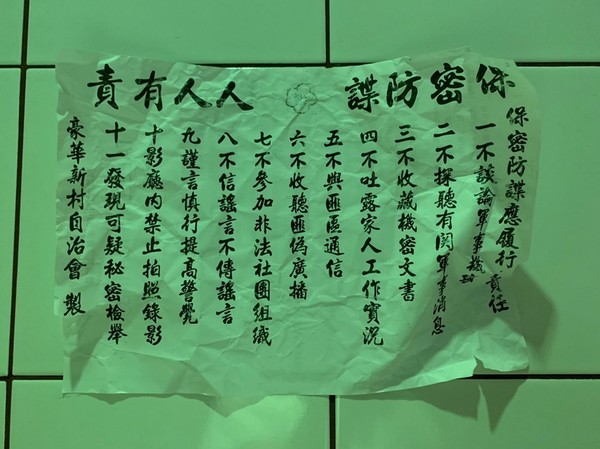 保密防諜 人人有責
保密防諜應履行責任
一不談論軍事機密
二不探聽有関軍事消息
三不收藏機密文書
四不吐露家人工作實況
五不與匪區通信
六不收聽匪偽廣播
七不參加非法社團組織
八不信謠言不傳謠言
九謹言慎行提高警覺
十影廳內禁止拍照錄影
十一發現可疑秘密檢舉
豪華新村自治會製